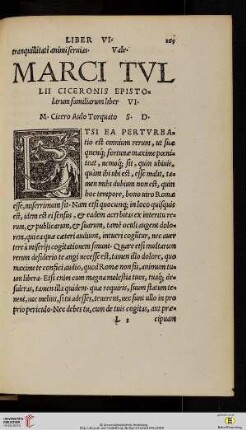 LIBER VI.
tranquillitati animi seruias. Vale.
MARCI TVL
LII CICERONIS EPISTO-
larum familiarum liber VI.
M. Cicero Aulo Torquato S. D.
ETSI EA PERTVRBA
tio est omnium rerum, ut suæ
quenq; fortunæ maxime pœni
teat, nemoq; sit, quin ubiuis,
quàm ibi ubi est, esse malit, ta-
men mihi dubium non est, quin
hoc tempore, bono uiro Romæ
esse, miserrimum sit. Nam etsi quocunq; in loco quisquis
est, idem est ei sensus, & eadem acerbitas ex interitu re-
rum, & publicarum, & suarum, tamen oculi augent dolo-
rem, qui ea quæ cæteri audiunt, intueri cogunt, nec auer
tere à miserijs cogitationem sinunt. Quare etsi multarum
rerum desiderio te angi necesse est, tamen illo dolore, quo
maxime te confici audio, quod Romæ non sis, animum tu-
um libera. Etsi enim cum magna molestia tuos, tuaq; de-
sideras, tamen illa quidem quæ requiris, suum statum te-
nent, nec melius, si tu adesses, tenerent, nec sunt ullo in pro
prio periculo. Nec debes tu, cum de tuis cogitas, aut præ-
cipuam